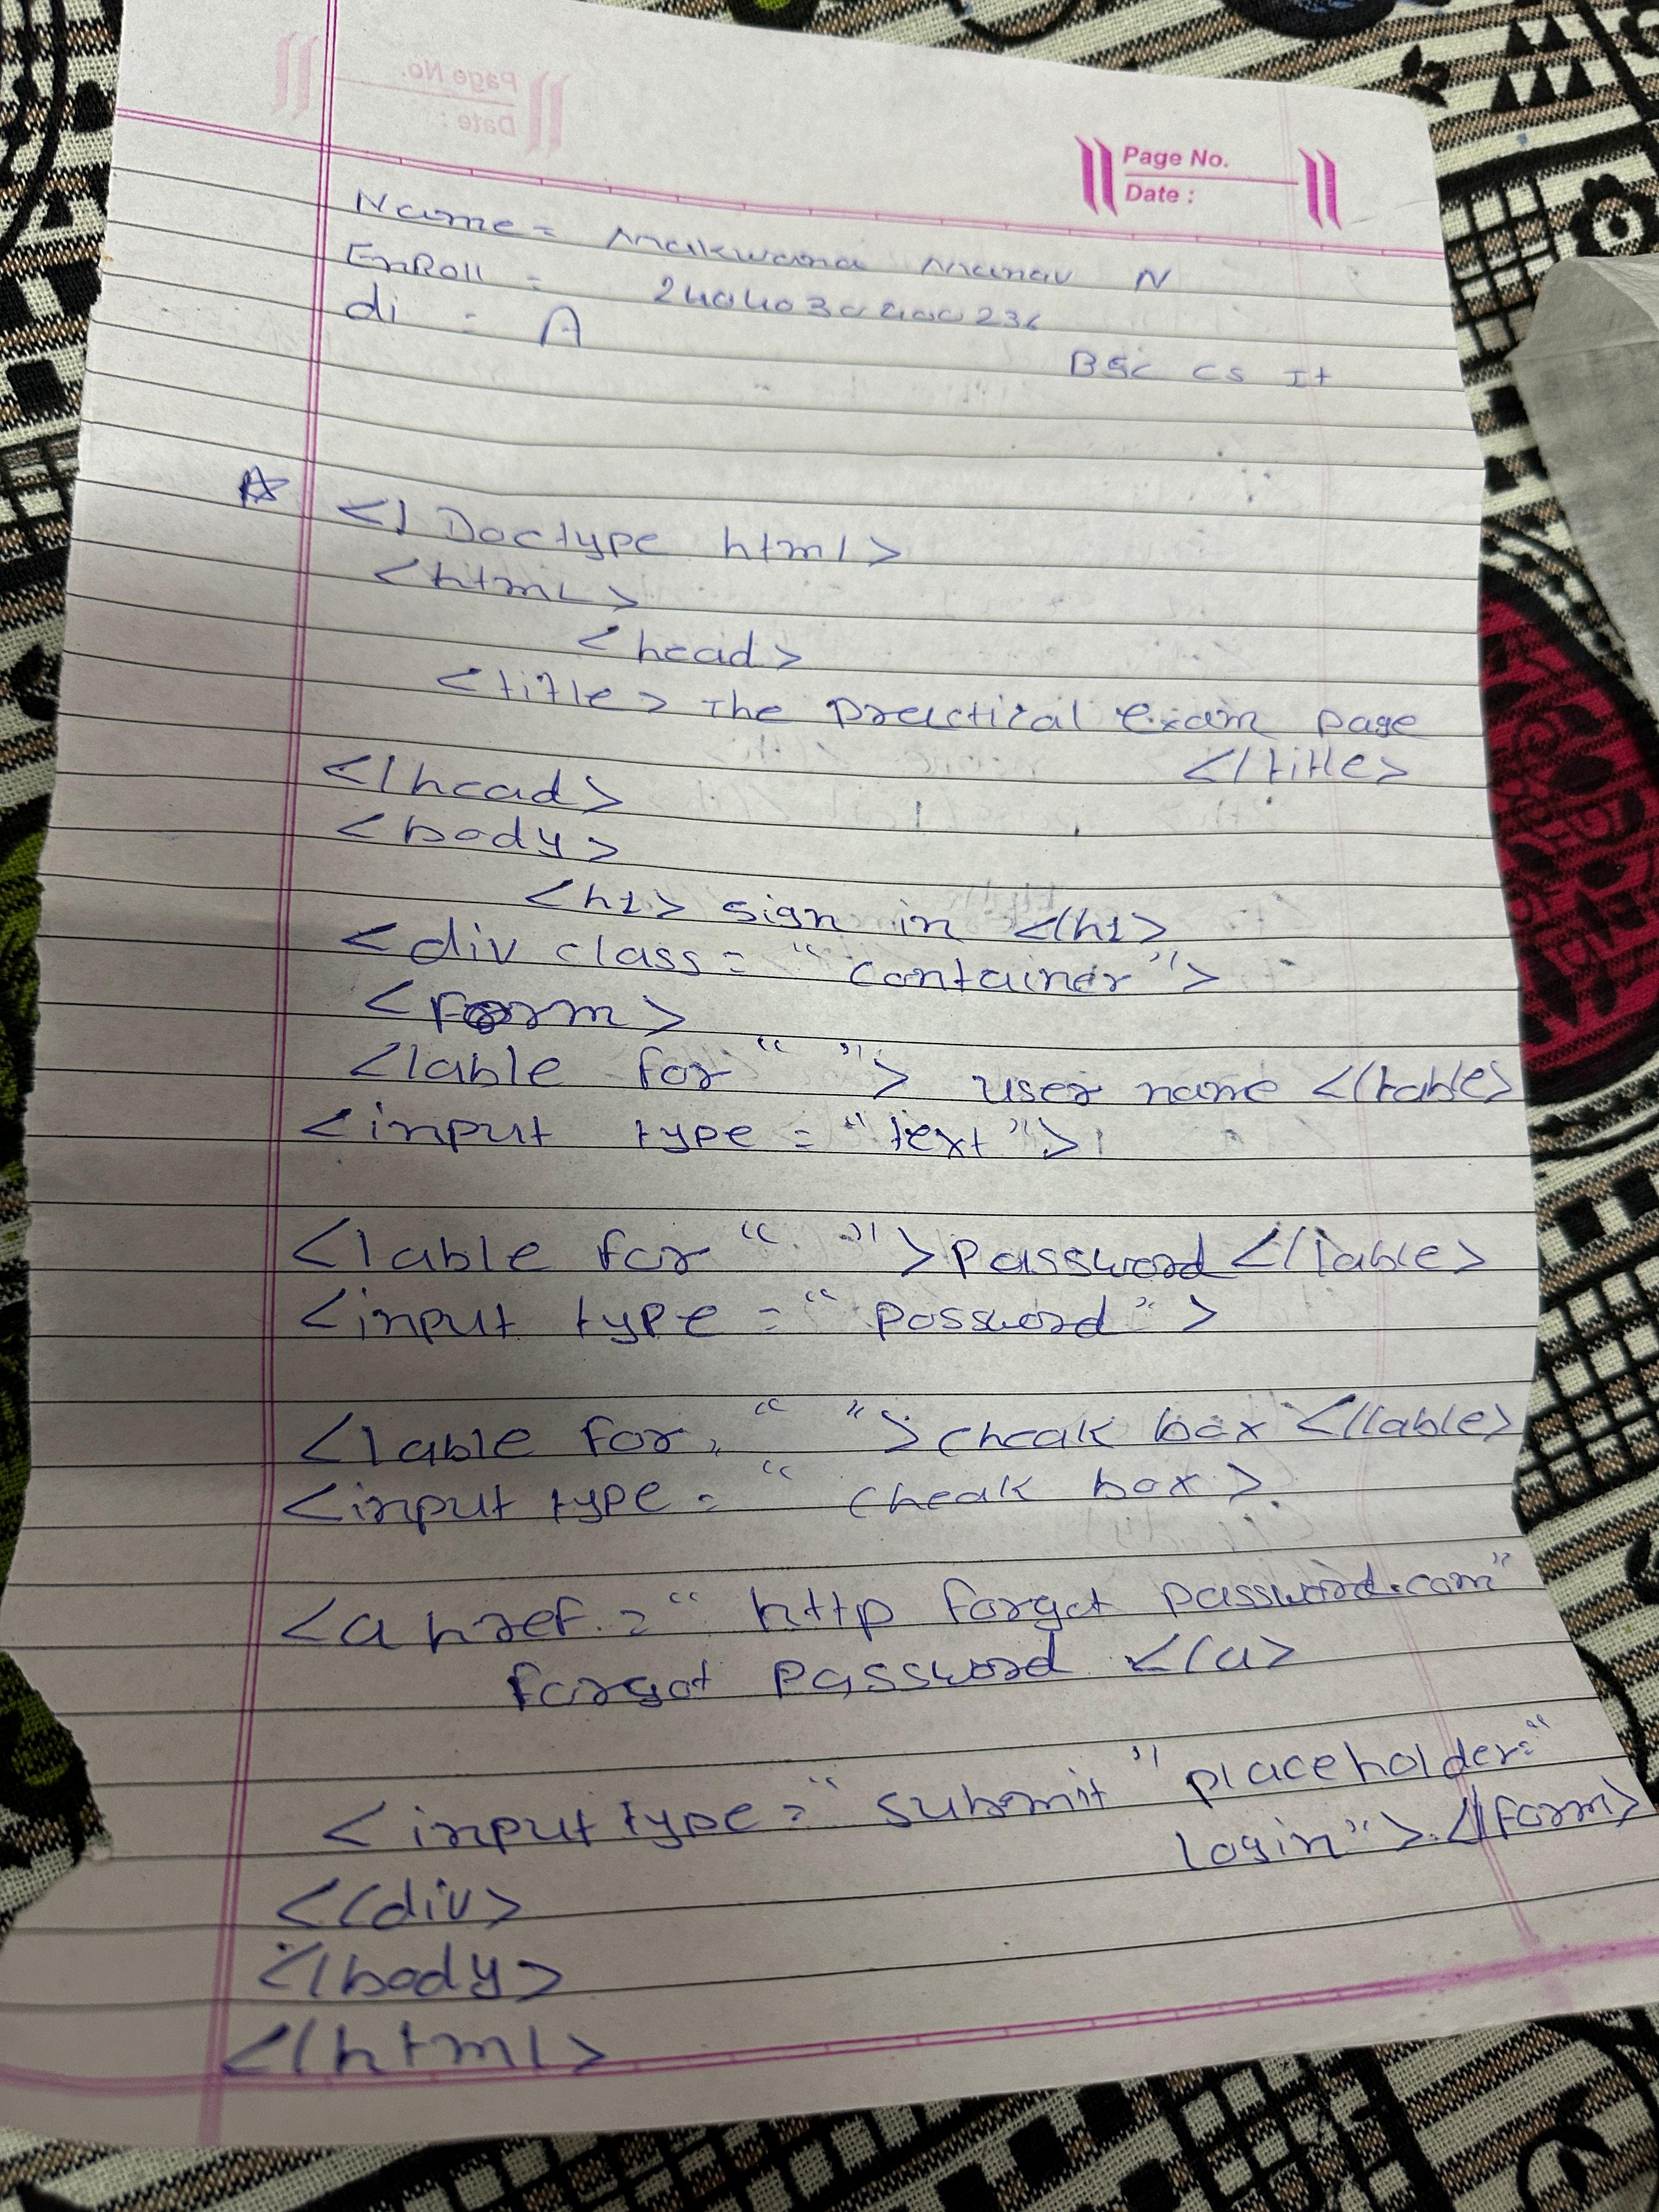 Page No.
Date :
Name = Makwana Manav N
EnRoll =
di : A
BSC CS It
<! Doctype html>
<html>
<head>
<title> The practical exam page
</title>
</head>
<body>
<h1> sign in </h1>
<div class = "container">
<form>
<lable for " "> user name </lable>
<input type = "text">
<lable for " "> password </lable>
<input type = "password">
<lable for, " "> cheak box </lable>
<input type = " cheak box >
<a href = " http forgot password.com"
forgot password </a>
<input type = "submit" placeholder="
login"> </form>
</div>
</body>
</html>